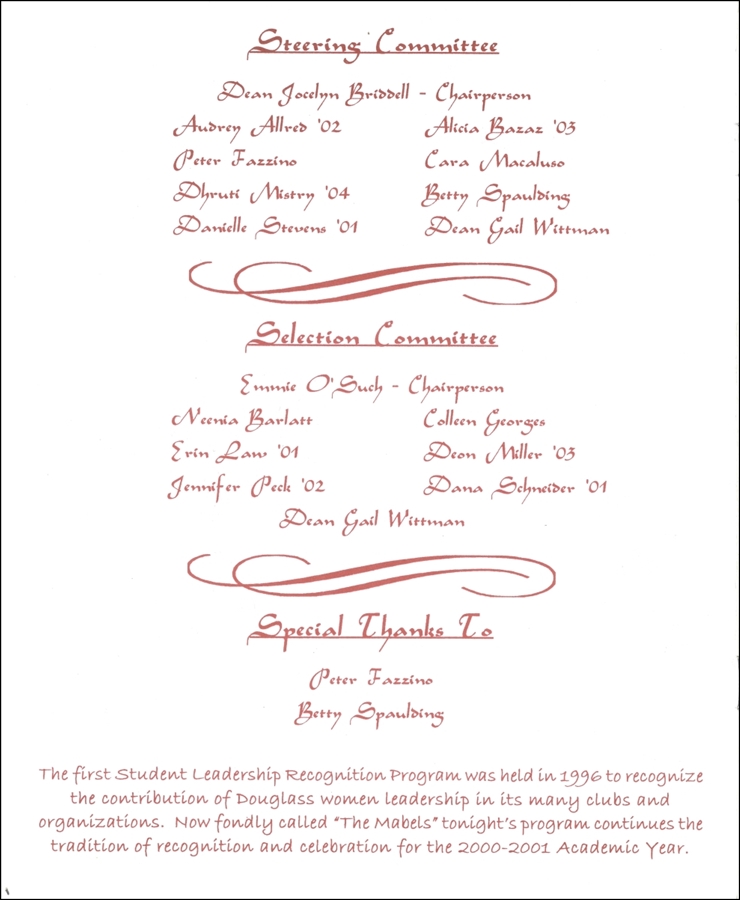 Steering Committee
Dean Jocelyn Briddell - Chairperson
Audrey Allred '02 Alicia Bazaz '03
Peter Fazzino Cara Macaluso
Dhruti Mistry '04 Betty Spaulding
Danielle Stevens '01 Dean Gail Wittman
Selection Committee
Emmie O'Such - Chairperson
Neenia Barlatt Colleen Georges
Erin Law '01 Deon Miller '03
Jennifer Peck '02 Dana Schneider '01
Dean Gail Wittman
Special Thanks To
Peter Fazzino
Betty Spaulding
The first Student Leadership Recognition Program was held in 1996 to recognize
the contribution of Douglass women leadership in its many clubs and
organizations. Now fondly called "The Mabels" tonight's program continues the
tradition of recognition and celebration for the 2000-2001 Academic Year.